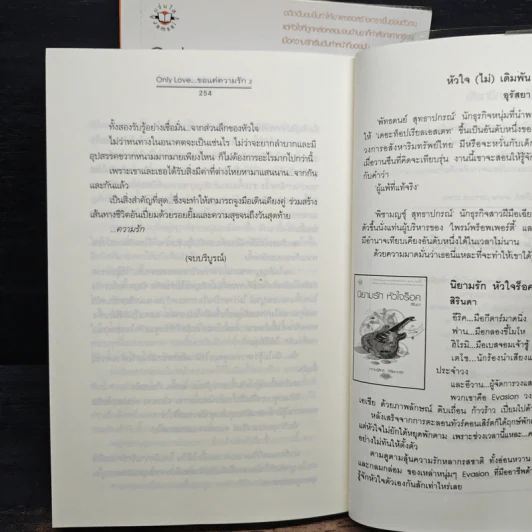 Only Love...ขอแค่ความรัก 2
254
ทั้งสองรับรู้อย่างเชื่อมั่น...จากส่วนลึกของหัวใจ
ไม่ว่าหนทางในอนาคตจะเป็นเช่นไร ไม่ว่าจะยากลำบากและมี
อุปสรรคขวากหนามมากมายเพียงไหน ก็ไม่ต้องการอะไรมากไปกว่านี้
เพราะเขาและเธอได้รับสิ่งมีค่าที่ต่างโหยหามาแสนนาน...จากกัน
และกันแล้ว
เป็นสิ่งสำคัญที่สุด...ซึ่งจะทำให้สามารถจูงมือเดินเคียงคู่ ร่วมสร้าง
เส้นทางชีวิตอันเปี่ยมด้วยรอยยิ้มและความสุขจนถึงวันสุดท้าย
...ความรัก
(จบบริบูรณ์)
หัวใจ (ไม่) เติมพัน
อุรัสยา
พัทธดนย์ สุทธาปกรณ์ นักธุรกิจหนุ่มที่นำพา
ให้ 'เดอะท้อปเรียลเอสเตท' ขึ้นเป็นอันดับหนึ่งของ
วงการอสังหาริมทรัพย์ไทย มีหรือจะหวั่นกับเด็ก
เมื่อวานซืนที่คิดจะเทียบรุ่น งานนี้เขาจะสอนให้รู้จัก
กับคำว่า
'ผู้แพ้ที่แท้จริง'
พิชามญชุ์ สุทธาปกรณ์ นักธุรกิจสาวฝีมือเฉียบ
ตัวขึ้นนั่งแท่นผู้บริหารของ 'ไพรม์พร็อพเพอร์ตี้' และ
มีอำนาจเทียบเคียงอันดับหนึ่งได้ในเวลาไม่นาน
ด้วยความมาดมั่นว่าเธอนี่แหละที่จะทำให้เขาได้
นิยามรัก หัวใจร็อค
สิรินดา
อีริค...มือกีตาร์มาดนิ่ง
ฟาน...มือกลองขี้โมโห
ฮิโรมิ...มือเบสจอมเจ้าชู้
เตโช...นักร้องนำเสียง
ประจำวง
และอีวาน...ผู้จัดการวงแส
พวกเขาคือ Evasion วง
เอเชีย ด้วยภาพลักษณ์ ดิบเถื่อน ก้าวร้าว เปี่ยมไปด้
หลังเสร็จจากการตะลอนทัวร์คอนเสิร์ตก็ได้ฤกษ์พัก
แต่หัวใจไม่ยักได้หยุดพักตาม เพราะช่วงเวลานี้แหละ...ค
อย่างไม่ทันให้ตั้งตัว
ตามดูตามลุ้นความรักหลากรสชาติ ทั้งอ่อนหวาน
และกลมกล่อม ของเหล่าหนุ่มๆ Evasion ที่มีออาชีพ
รู้จักหัวใจตัวเองกันสักเท่าไหร่เลย